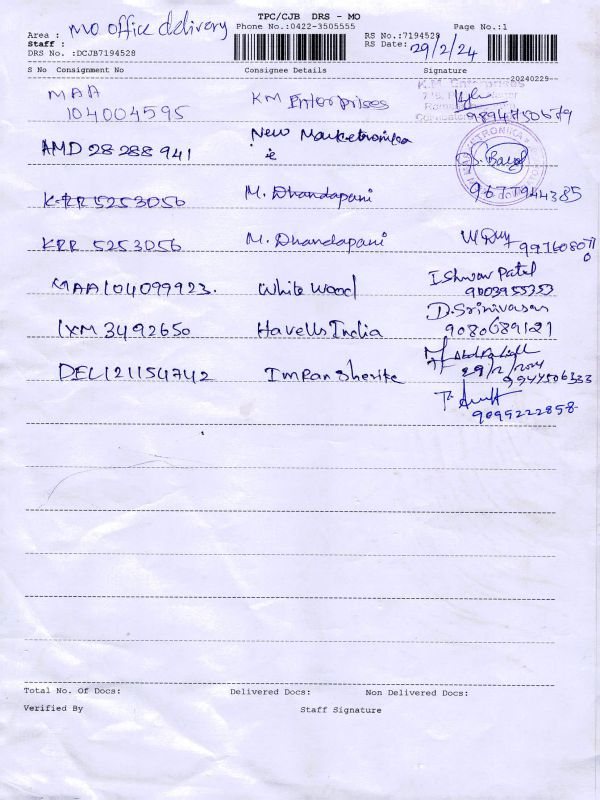 TPC/CJB DRS - MO
Area : MO office delivery Phone No.:0422-3505555 RS No.:7194528 Page No.:1
Staff : RS Date: 29/2/24
DRS No. :DCJB7194528
S No Consignment No Consignee Details Signature
20240229
MAA
104004595 KM Enterprises 9894750679
K.M. Enterprises
AMD 28288941 New Marketronika
KRR 5253056 M. Dhandapani 9677944385
KRR 5253056 M. Dhandapani
MAA104099923. White wood Ishwar Patel
9003955253
IXM 3492650 Havells India D. Srinivasan
9080689121
DEL121154742 29/2/2024
9944506333
9099222858
Total No. Of Docs: Delivered Docs: Non Delivered Docs:
Verified By Staff Signature